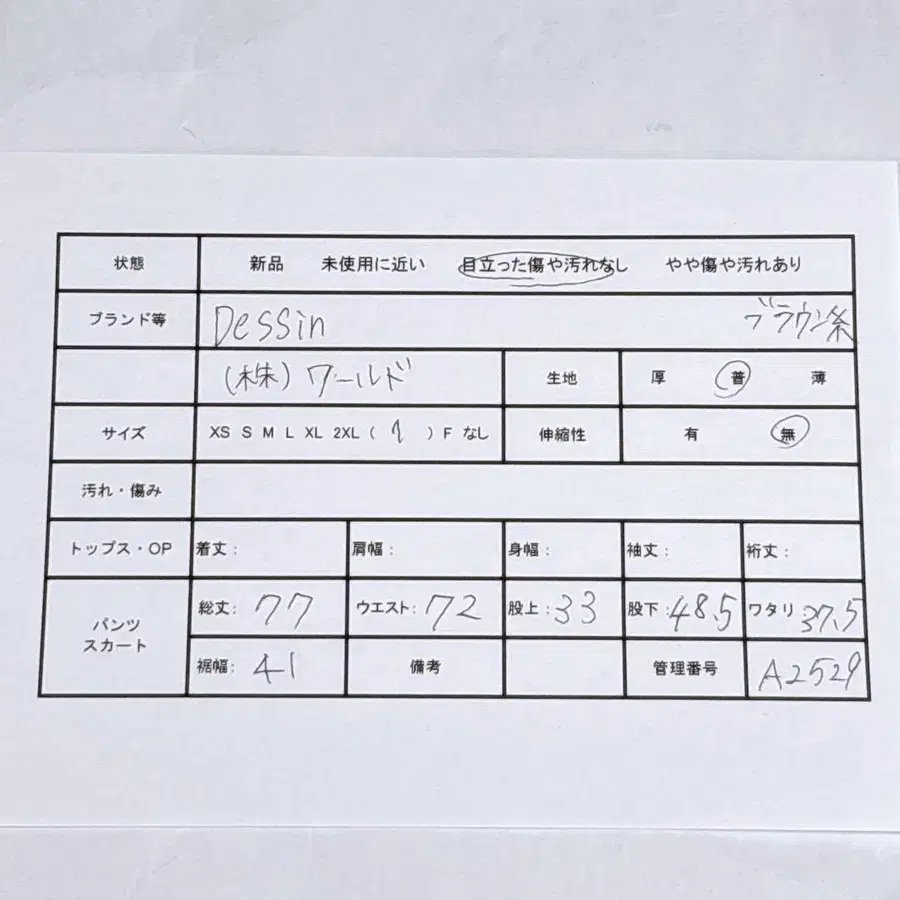 状態 新品 未使用に近い 目立った傷や汚れなし やや傷や汚れあり
ブランド等 Dessin ブラウン系
(株)ワールド 生地 厚 普 薄
サイズ XS S M L XL 2XL ( 1 ) F なし 伸縮性 有 無
汚れ・傷み
トップス・OP 着丈: 肩幅: 身幅: 袖丈: 裄丈:
パンツ スカート 総丈: 77 ウエスト: 72 股上: 33 股下: 48.5 ワタリ: 37.5
裾幅: 41 備考 管理番号 A2529